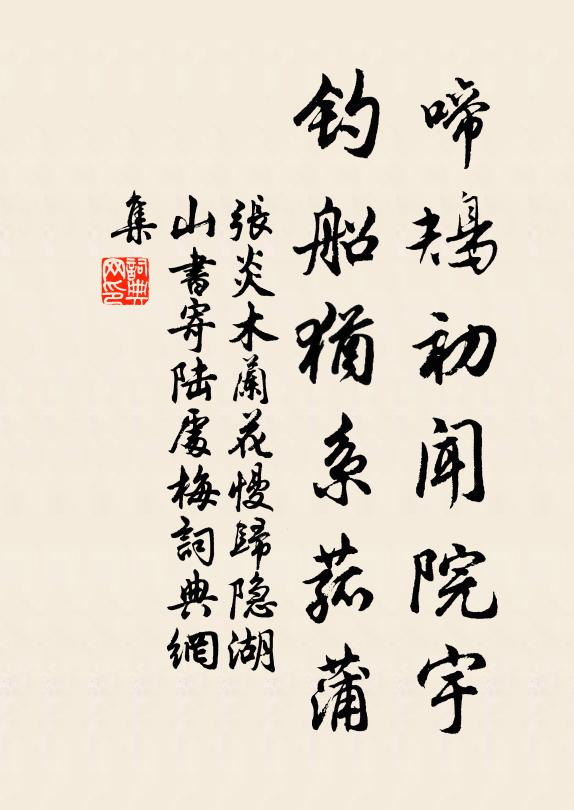 啼鴂初聞院宇
釣船猶系菰蒲
張炎木蘭花慢歸隐湖
山書寄陸處梅詞典網
集
詞典網印